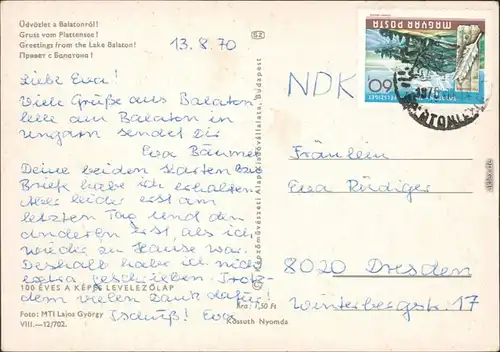 Üdvözlet a Balatonról!
Gruss vom Plattensee!
Greetings from the Lake Balaton!
Привет с Балатона!
13.8.70
Liebe Eva!
Viele Grüße aus Balaton
lelle am Balaton in
Ungarn sendet dir
Eva Bäumel
Deine beiden Karten bzw
Briefe habe ich erhalten
Aber leider erst am
letzten Tag und den
anderen Erst als ich
wieder zu Hause war.
Deshalb habe ich nicht
extra geschrieben. Trotz-
dem vielen Dank dafür!
Tschüß! Eva
100 ÉVES A KÉPES LEVELEZŐLAP
Foto: MTI Lajos György
VIII.—12/702.
Ára: 1,50 Ft
Kossuth Nyomda
Képzőművészeti Alap Kiadóvállalata, Budapest
NDK
MAGYAR POSTA
60
Fräulein
Eva Rüdiger
8020 Dresden
Winterbergstr. 17